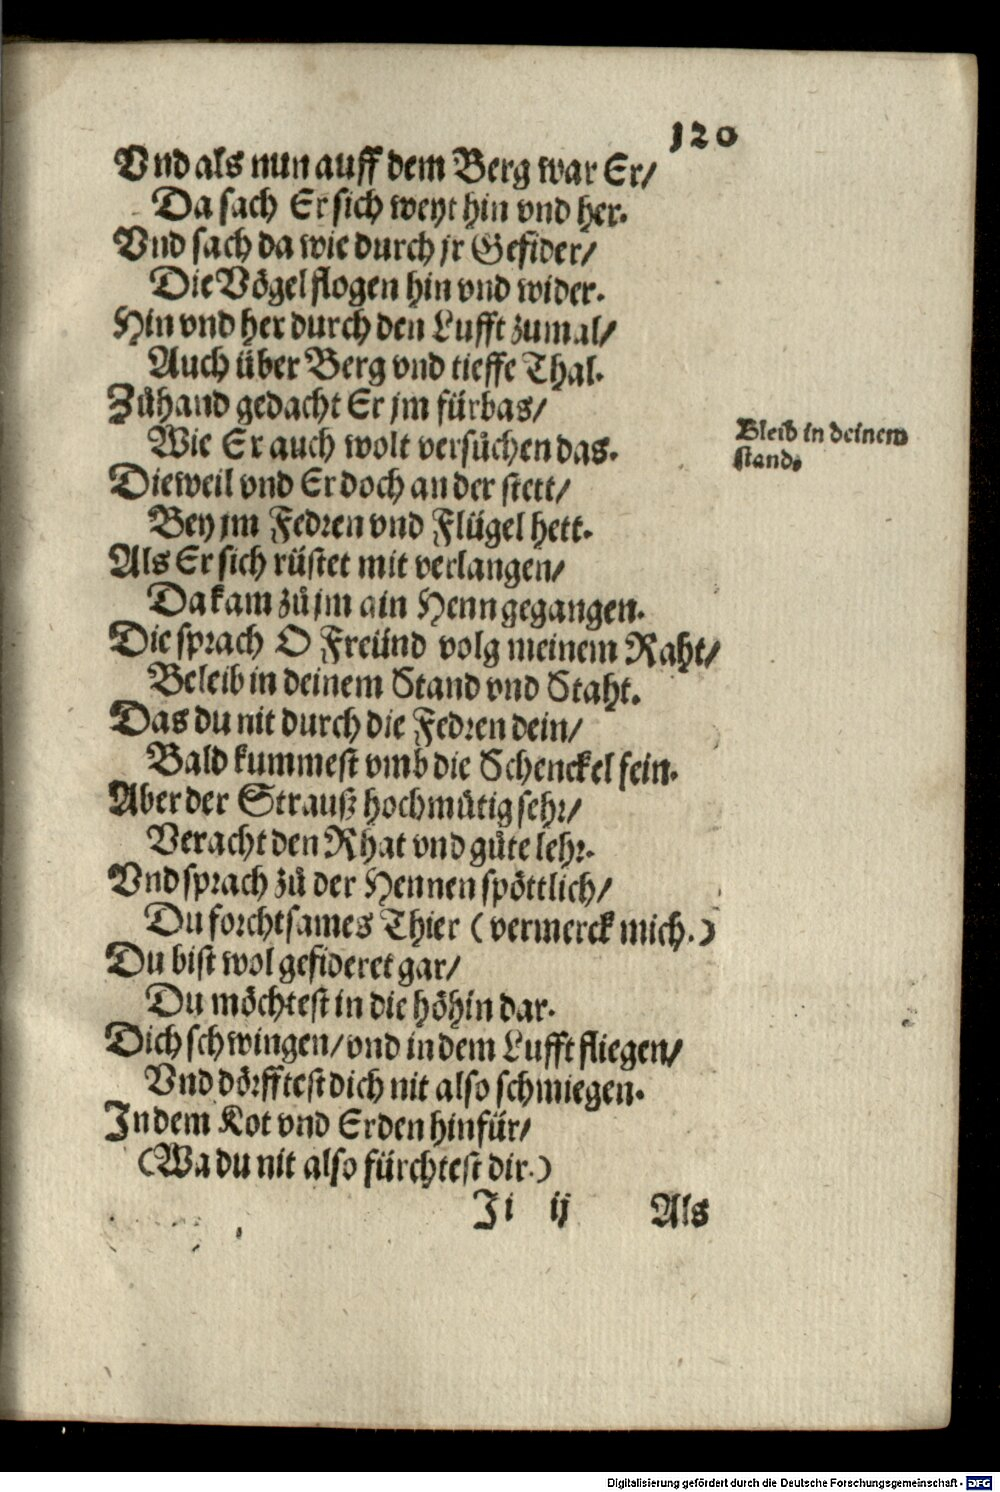 120
Vnd als nun auff dem Berg war Er/
Da sach Er sich weyt hin vnd her.
Vnd sach da wie durch jr Gefider/
Die Vögel flogen hin vnd wider.
Hin vnd her durch den Lufft zumal/
Auch über Berg vnd tieffe Thal.
Zůhand gedacht Er jm fürbas/
Wie Er auch wolt versůchen das.
Bleib in deinem
stand.
Dieweil vnd Er doch an der stett/
Bey jm Fedren vnd Flügel hett.
Als Er sich rüstet mit verlangen/
Da kam zů jm ain Henn gegangen.
Die sprach O Freünd volg meinem Raht/
Beleib in deinem Stand vnd Staht.
Das du nit durch die Fedren dein/
Bald kummest vmb die Schenckel fein.
Aber der Strauß hochmütig sehr/
Veracht den Rhat vnd gůte lehr.
Vnd sprach zů der Hennen spöttlich/
Du forchtsames Thier (vermerck mich.)
Du bist wol gefideret gar/
Du möchtest in die höhin dar.
Dich schwingen/vnd in dem Lufft fliegen/
Vnd dörfftest dich nit also schmiegen.
In dem Kot vnd Erden hinfür/
(Wa du nit also fürchtest dir.)
Ii ij Als
Digitalisierung gefördert durch die Deutsche Forschungsgemeinschaft - DFG